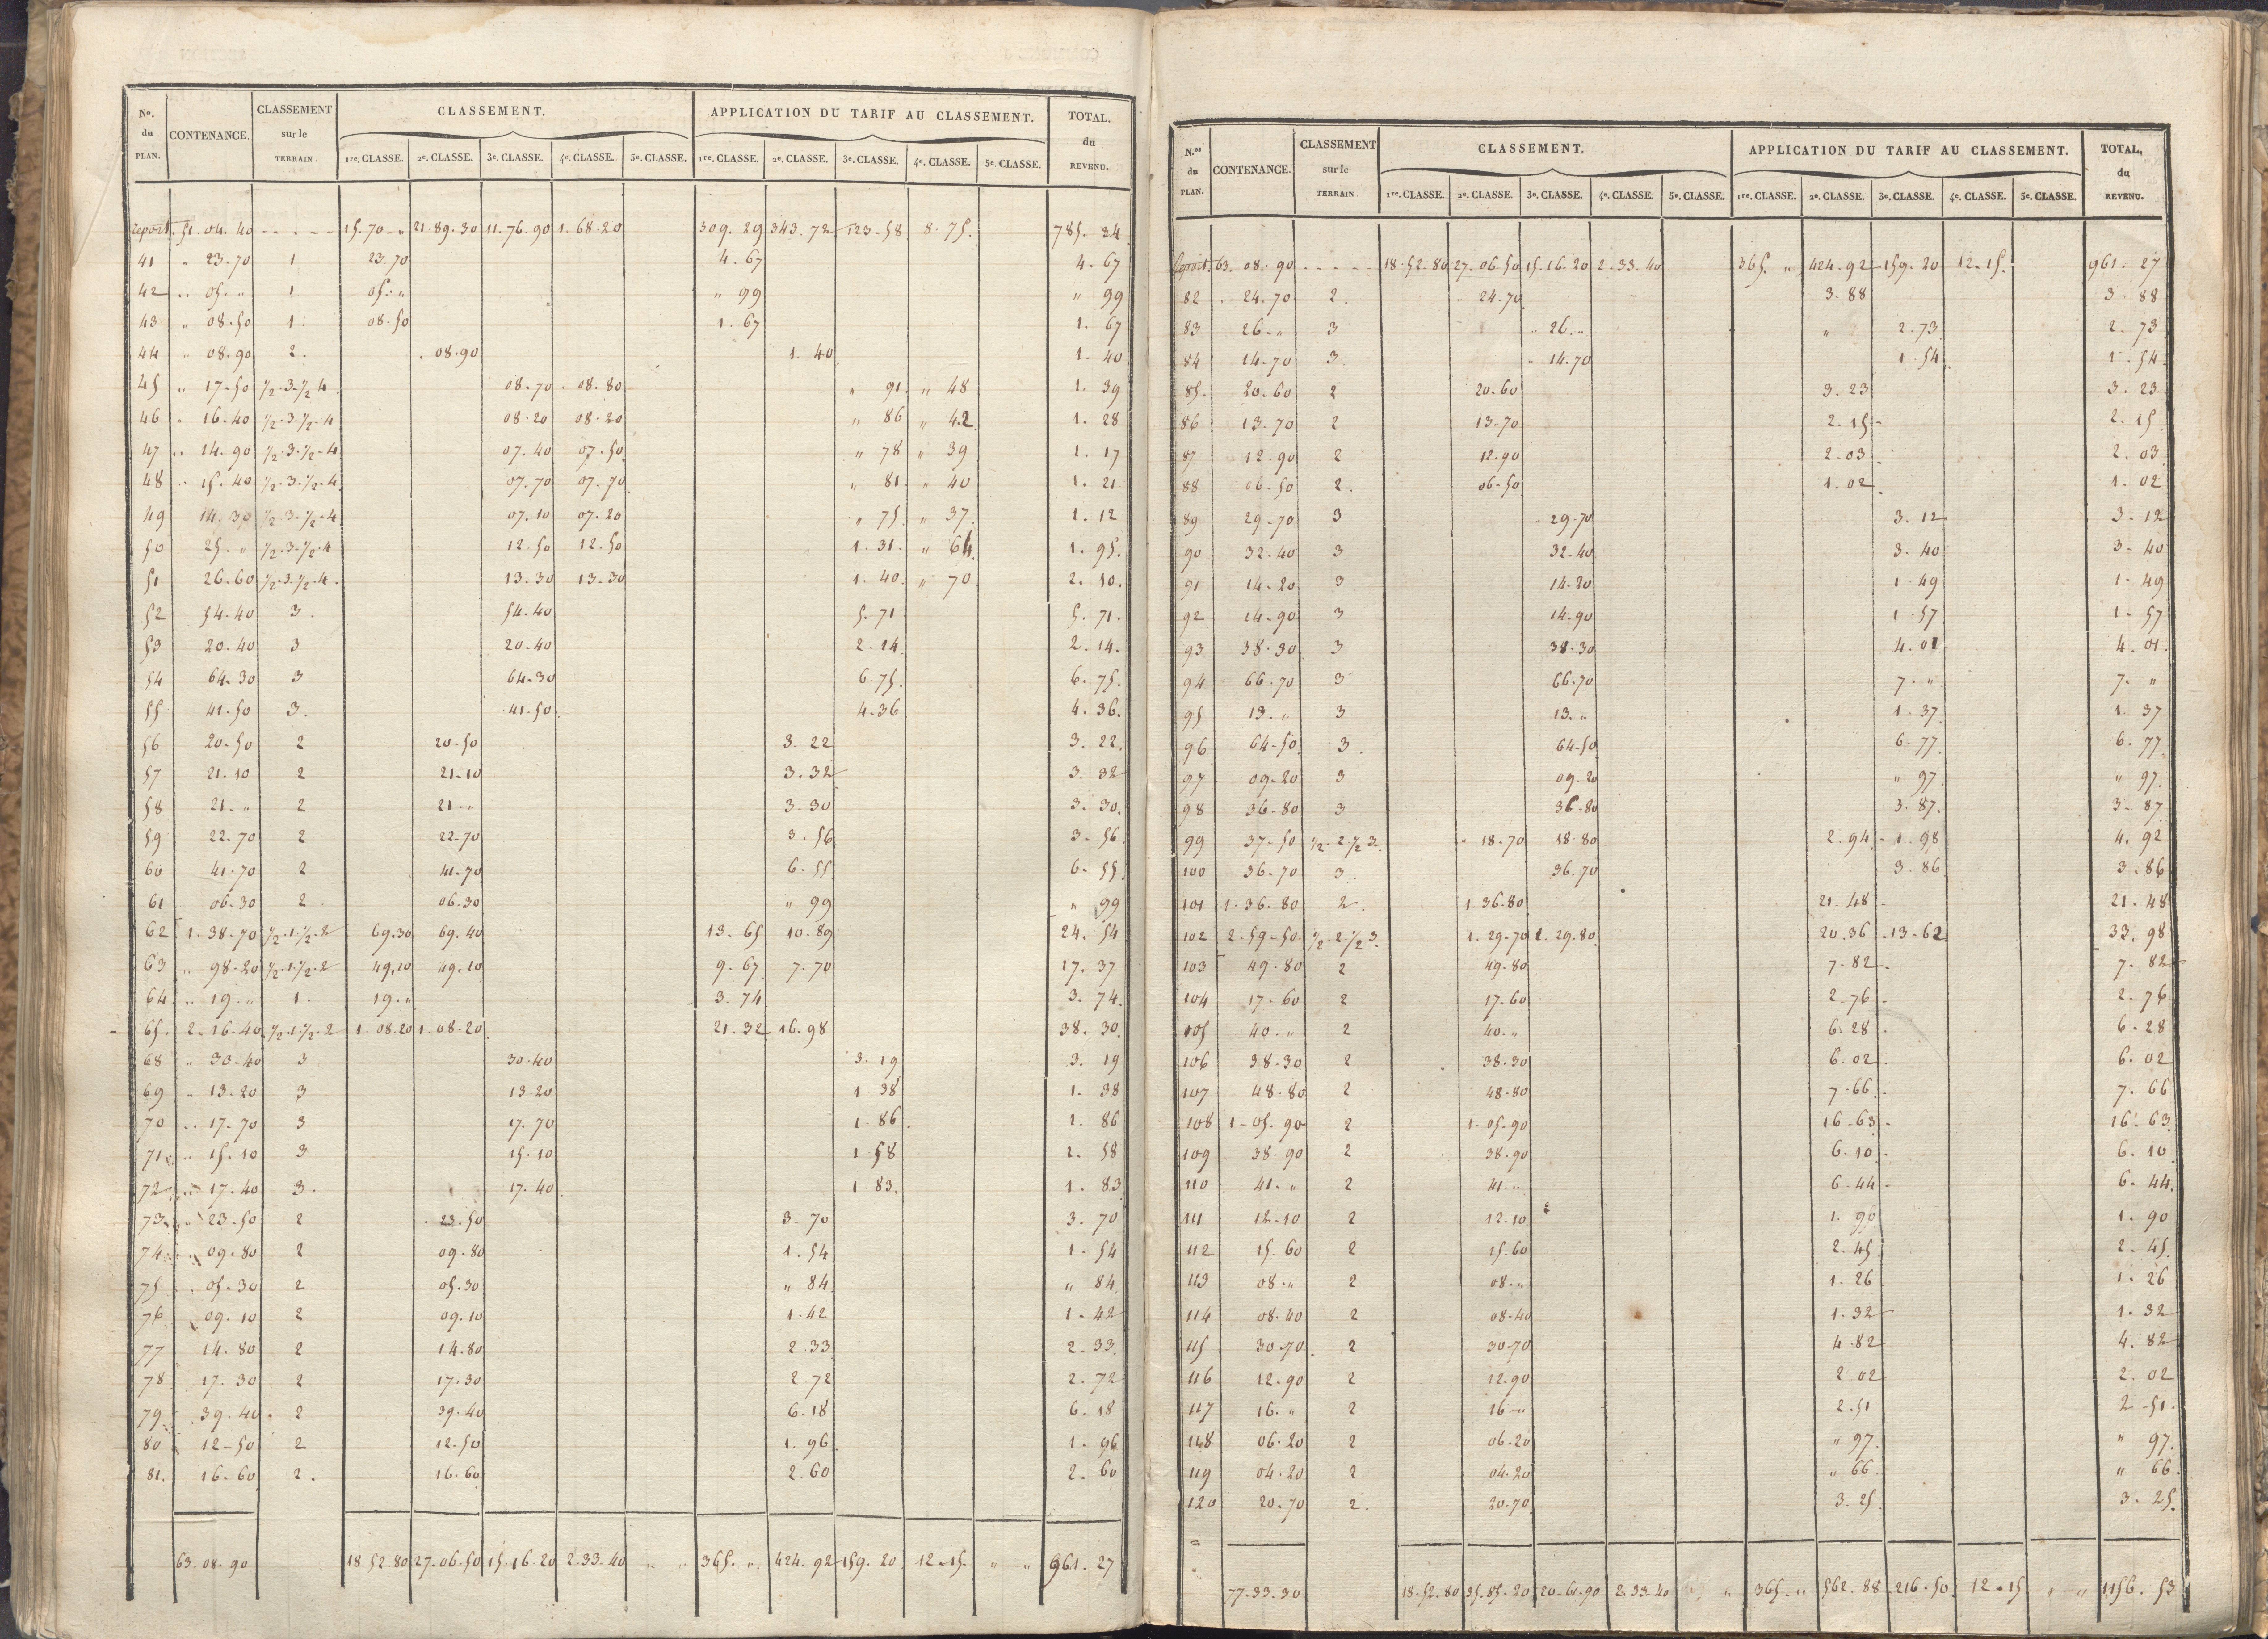 No. du PLAN. CONTENANCE. CLASSEMENT sur le TERRAIN. CLASSEMENT. APPLICATION DU TARIF AU CLASSEMENT. TOTAL. du REVENU.
1re. CLASSE. 2e. CLASSE. 3e. CLASSE. 4e. CLASSE. 5e. CLASSE. 1re. CLASSE. 2e. CLASSE. 3e. CLASSE. 4e. CLASSE. 5e. CLASSE.
report. 51. 04. 40 15. 70 - " 21. 89. 30 11. 76. 90 1. 68. 20 309. 29 343. 72 123. 58 8. 75. 785. 34
41 " 23. 70 1 23. 70 4. 67 4. 67
42 " 05. " 1 05. " " 99 " 99
43 " 08. 50 1. 08. 50 1. 67 1. 67
44 " 08. 90 2. 08. 90 1. 40 1. 40
45 " 17. 50 1/2. 3. 1/2 4 08. 70 08. 80 " 91. " 48 1. 39
46 " 16. 40 1/2. 3. 1/2. 4 08. 20 08. 20 " 86 " 42 1. 28
47 " 14. 90 1/2. 3. 1/2. 4 07. 40 07. 50 " 78 " 39 1. 17
48 " 15. 40 1/2. 3. 1/2. 4 07. 70 07. 70 " 81. " 40 1. 21
49 14. 30 1/2. 3. 1/2. 4 07. 10 07. 20 " 75. " 37. 1. 12
50 25. " 1/2. 3. 1/2. 4 12. 50 12. 50 1. 31. " 64. 1. 95.
51 26. 60 1/2. 3. 1/2. 4. 13. 30 13. 30 1. 40. " 70 2. 10.
52 54. 40 3. 54. 40 5. 71 5. 71.
53 20. 40 3 20. 40 2. 14. 2. 14.
54 64. 30 3 64. 30 6. 75. 6. 75.
55 41. 50 3. 41. 50 4. 36 4. 36.
56 20. 50 2 20. 50 3. 22 3. 22.
57 21. 10 2 21. 10 3. 32 3 32
58 21. " 2 21. " 3. 30 3. 30.
59 22. 70 2 22. 70 3. 56 3. 56
60 41. 70 2 41. 70 6. 55 6. 55
61 06. 30 2. 06. 30 " 99 " 99
62 1. 38. 70 1/2. 1. 1/2. 2 69. 30 69. 40 13. 65 10. 89 24. 54
63 " 98. 20 1/2. 1. 1/2. 2 49. 10 49. 10 9. 67 7. 70 17. 37
64 " 19. " 1. 19. " 3. 74 3. 74.
65. 2. 16. 40 1/2. 1. 1/2. 2 1. 08. 20 1. 08. 20 21. 32 16. 98 38. 30.
68 " 30. 40 3 30. 40 3. 19 3. 19
69 " 13. 20 3 13. 20 1 38 1. 38
70 " 17. 70 3 17. 70 1. 86. 1. 86
71 " 15. 10 3 15. 10 1 58 1. 58
72 " 17. 40 3. 17. 40 1 83. 1. 83
73 " 23. 50 2 23. 50 3. 70 3. 70
74 09. 80 2 09. 80 1. 54 1. 54
75 05. 30 2 05. 30 " 84 " 84
76 09. 10 2 09. 10 1. 42 1. 42
77 14. 80 2 14. 80 2. 33 2. 33.
78 17. 30 2 17. 30 2. 72 2. 72
79 39. 40. 2 39. 40 6. 18 6. 18
80 12. 50 2 12. 50 1. 96 1. 96
81. 16. 60 2. 16. 60 2. 60 2. 60
63. 08. 90 18. 52. 80 27. 06. 50 15. 16. 20 2. 33. 40 " " 365. " 424. 92 159. 20 12. 15. " " 961. 27
N.os du PLAN. CONTENANCE. CLASSEMENT sur le TERRAIN. CLASSEMENT. APPLICATION DU TARIF AU CLASSEMENT. TOTAL, du REVENU.
1re. CLASSE. 2e. CLASSE. 3e. CLASSE. 4e. CLASSE. 5e. CLASSE. 1re. CLASSE. 2e. CLASSE. 3e. CLASSE. 4e. CLASSE. 5e. CLASSE.
Report. 63. 08. 90 18. 52. 80 27. 06. 50 15. 16. 20 2. 33. 40 365. " 424. 92 159. 20 12. 15. 961. 27
82 24. 70 2. 24. 70 3. 88 3. 88
83 26. " 3 26. " " 2. 73 2. 73
84 14. 70 3. 14. 70 1. 54 1. 54
85. 20. 60 2 20. 60 3. 23 3. 23
86 13. 70 2 13. 70 2. 15 2. 15
87 12. 90 2 12. 90 2. 03 2. 03
88 06. 50 2. 06. 50 1. 02 1. 02
89 29. 70 3 29. 70 3. 12 3. 12
90 32. 40 3 32. 40 3. 40 3. 40
91 14. 20 3 14. 20 1. 49 1. 49
92 14. 90 3 14. 90 1. 57 1. 57
93 38. 30 3 38. 30 4. 01 4. 01.
94 66. 70 3 66. 70 7. " 7. "
95 13. " 3 13. " 1. 37 1. 37
96 64. 50 3. 64. 50 6. 77 6. 77
97 09. 20 3 09. 20 " 97 " 97.
98 36. 80 3 36. 80 3. 87. 3. 87
99 37. 50 1/2. 2. 1/2 3. 18. 70 18. 80 2. 94. 1. 98 4. 92
100 36. 70 3. 36. 70 3. 86 3. 86
101 1. 36. 80 2. 1. 36. 80 21. 48 21. 48
102 2. 59. 50 1/2. 2. 1/2 3. 1. 29. 70 1. 29. 80 20. 36 13. 62 33. 98
103 49. 80 2 49. 80 7. 82 7. 82
104 17. 60 2 17. 60 2. 76 2. 76
105 40. " 2 40. " 6. 28 6. 28
106 38. 30 2 38. 30 6. 02 6. 02
107 48. 80 2 48. 80 7. 66 7. 66
108 1. 05. 90 2 1. 05. 90 16. 63 16. 63
109 38. 90 2 38. 90 6. 10 6. 10
110 41. " 2 41. " 6. 44 6. 44.
111 12. 10 2 12. 10 1. 90 1. 90
112 15. 60 2 15. 60 2. 45 2. 45.
113 08. " 2 08. " 1. 26 1. 26
114 08. 40 2 08. 40 1. 32 1. 32
115 30. 70. 2 30. 70 4. 82 4. 82
116 12. 90 2 12. 90 2 02 2. 02
117 16. " 2 16. " 2. 51 2. 51.
118 06. 20 2 06. 20 " 97. " 97.
119 04. 20 2 04. 20 " 66 " 66.
120 20. 70 2. 20. 70 3. 25. 3. 25.
77. 33. 30 18. 52. 80 35. 85. 20 20. 61. 90 2. 33. 40 " 365. " 562. 88 216. 50 12. 15 " " 1156. 53